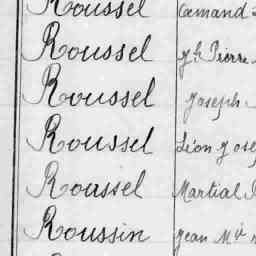 Roussel Armand
Roussel Jh Pierre
Roussel Joseph
Roussel Léon Jose
Roussel Martial
Roussin Jean Mie